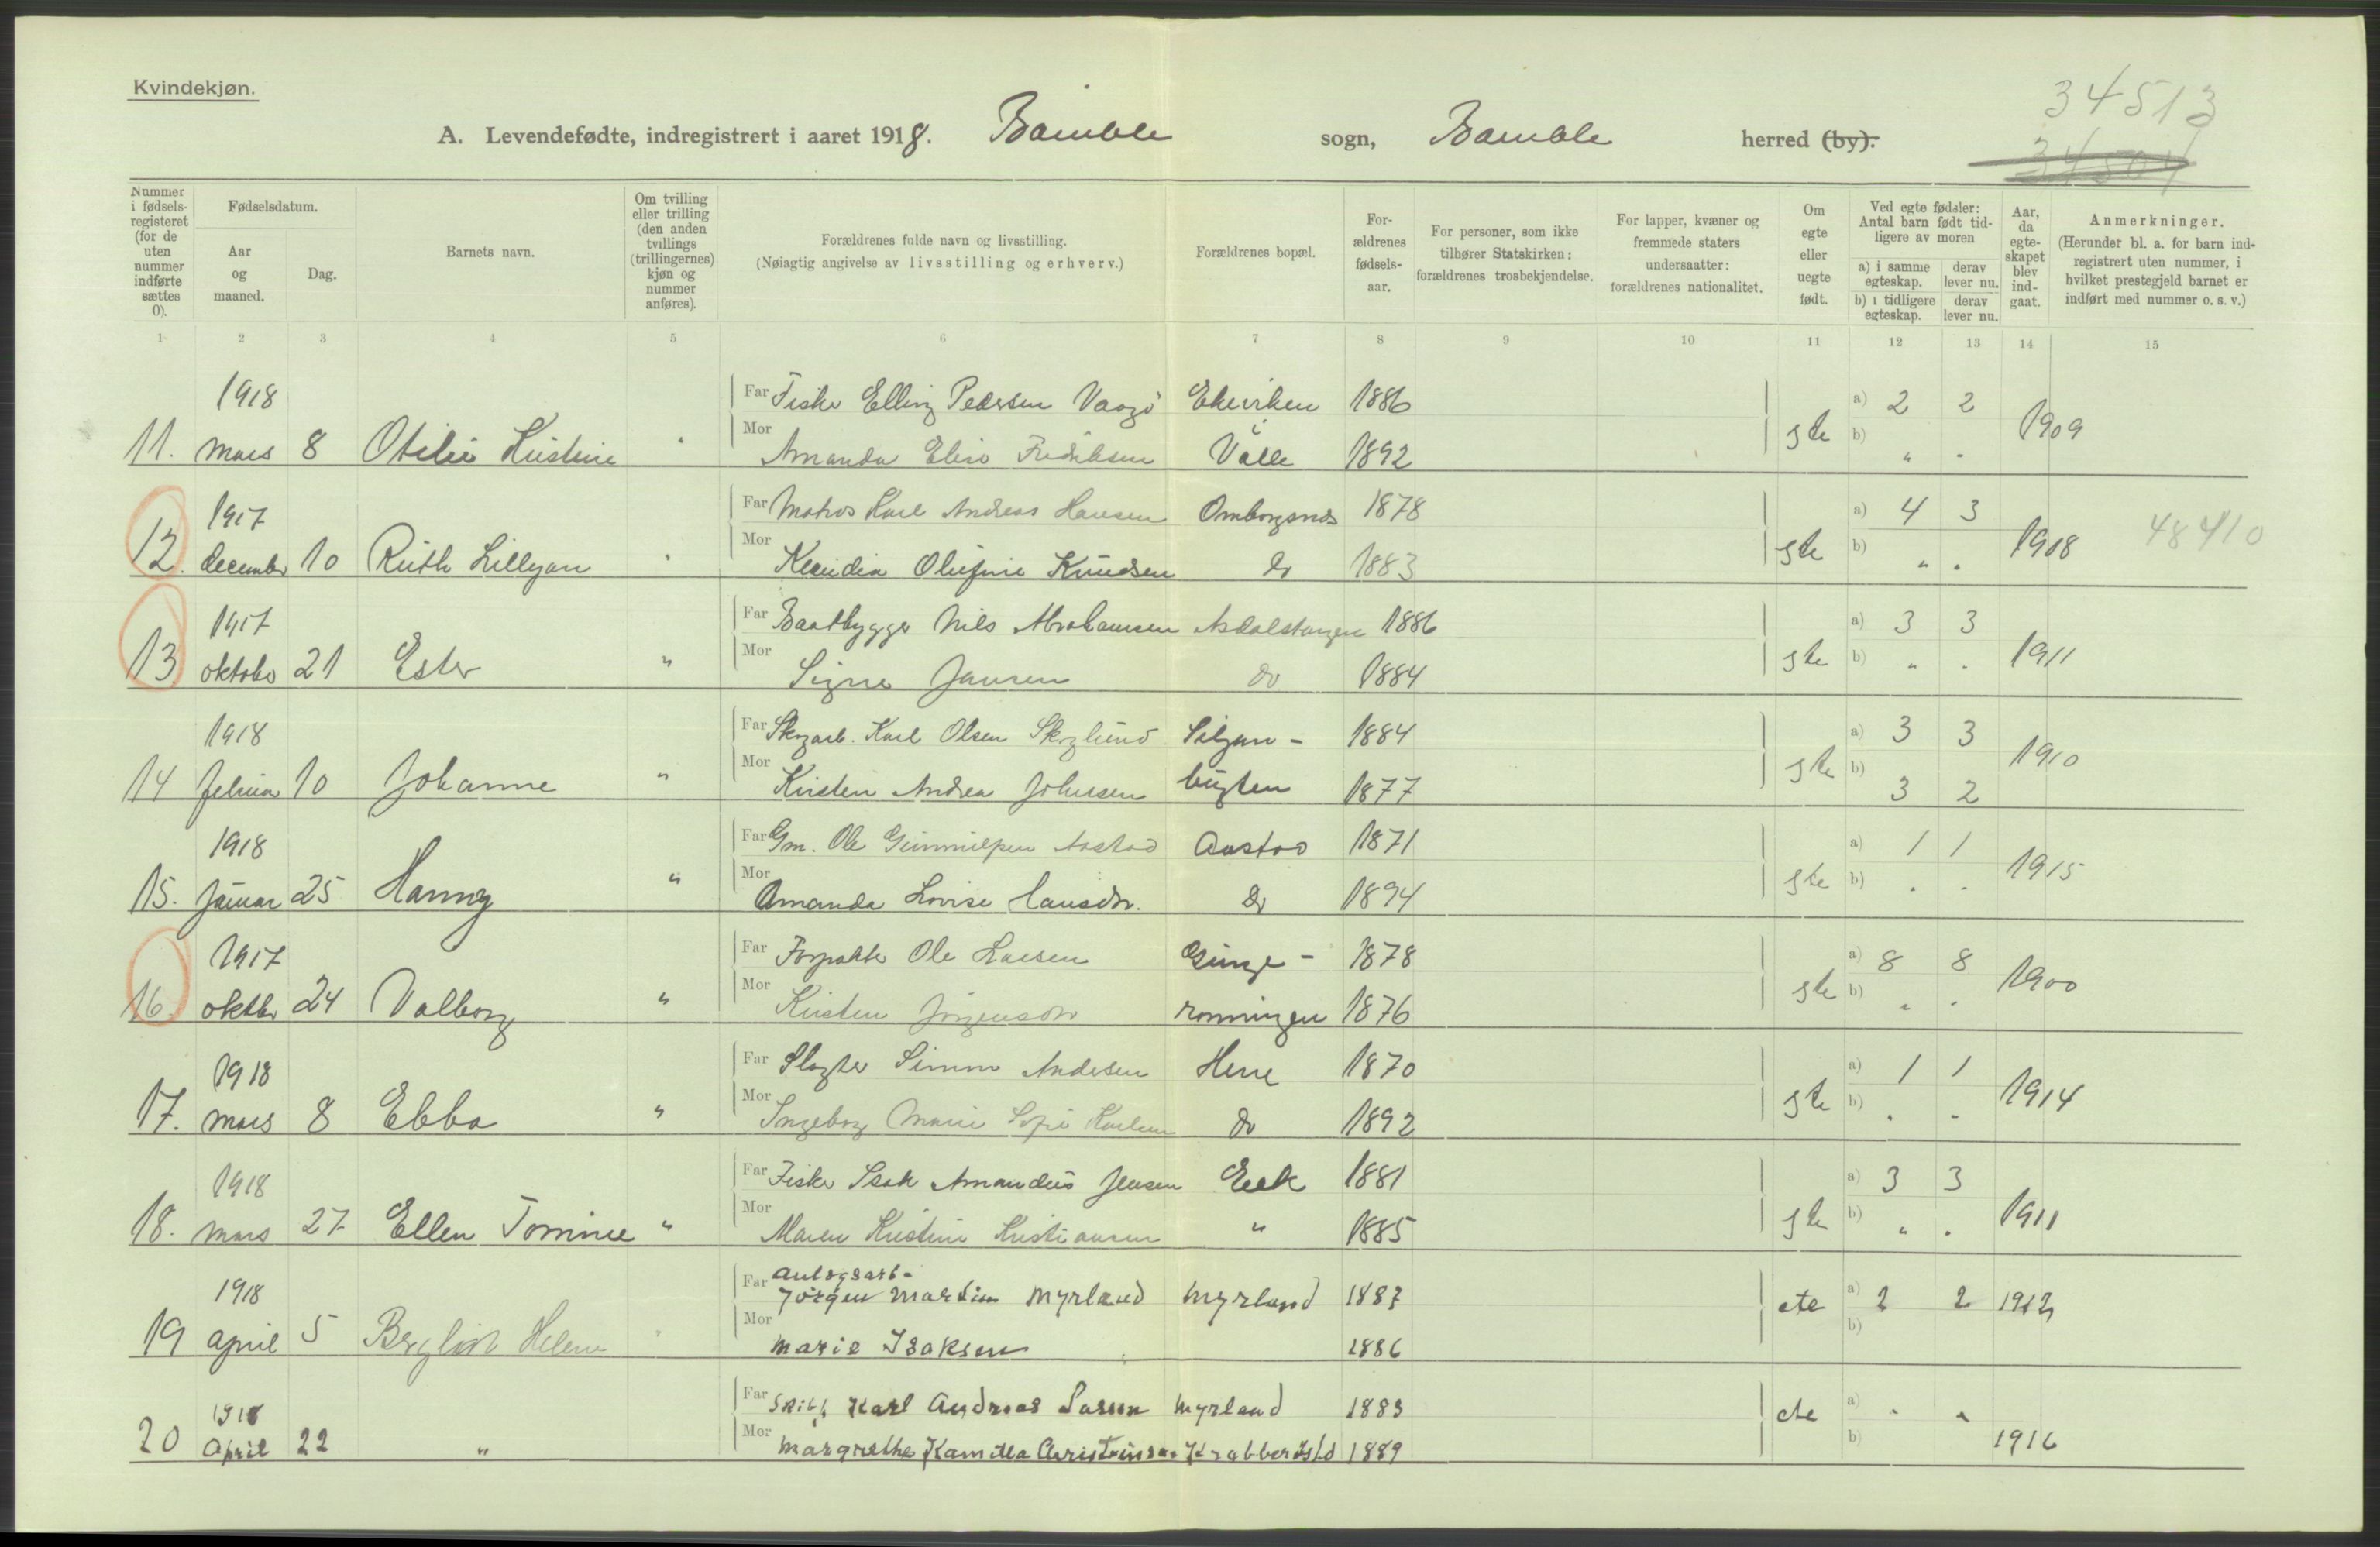 Kvindekjøn.
34513
34504
A. Levendefødte, indregistrert i aaret 1918. Bamble sogn, Bamble herred (by).
Nummer i fødsels-registeret (for de uten nummer indførte sættes 0).
Fødselsdatum.
Aar og maaned.
Dag.
Barnets navn.
Om tvilling eller trilling (den anden tvillings (trillingernes) kjøn og nummer anføres).
Forældrenes fulde navn og livsstilling.
(Nøiagtig angivelse av livsstilling og erhverv.)
Forældrenes bopæl.
For-ældrenes fødsels-aar.
For personer, som ikke tilhører Statskirken: forældrenes trosbekjendelse.
For lapper, kvæner og fremmede staters undersaatter: forældrenes nationalitet.
Om egte eller uegte født.
Ved egte fødsler: Antal barn født tid-ligere av moren
a) i samme egteskap. derav lever nu.
b) i tidligere egteskap. derav lever nu.
Aar, da egte-skapet blev ind-gaat.
Anmerkninger.
(Herunder bl. a. for barn ind-registrert uten nummer, i hvilket prestegjeld barnet er indført med nummer o. s. v.)
1 2 3 4 5 6 7 8 9 10 11 12 13 14 15
1918 Far Fisker Elling Pedersen Vaagø Ekeviken 1886 a) 2 2
11. mars 8 Otilie Kristine " Mor Amanda Elise Fredriksen Valle 1892 gte b) " " 1909
1917 Far Matros Karl Andreas Hansen Omborgsnes 1878 a) 4 3
12. december 10 Ruth Lillyan " Mor Klaudia Olufine Knudsen do 1883 gte b) " " 1908 48410
1917 Far Baatbygger Nils Abrahamsen Asdalstangen 1886 a) 3 3
13 oktober 21 Ester " Mor Signe Jansen do 1884 gte b) " " 1911
1918 Far Skogarb. Karl Olsen Skoglund Siljan- 1884 a) 3 3
14 februar 10 Johanne " Mor Kirsten Andrea Johnssen bugten 1877 gte b) 3 2 1910
1918 Far Gm. Ole Gunnulfsen Aastad Aastad 1871 a) 1 1
15. januar 25 Hanny " Mor Amanda Lovise Hansdtr. do 1894 gte b) " " 1915
1917 Far Forpakter Ole Larsen Gunge- 1878 a) 8 8
16. oktbr 24 Valborg " Mor Kirsten Jørgensdtr ronningen 1876 gte b) " " 1900
1918 Far Slagter Simon Andersen Herre 1870 a) 1 1
17. mars 8 Ebba " Mor Ingeborg Marie Sofie Karlsen do 1892 gte b) " " 1914
1918 Far Fisker Isak Amandus Jensen Eek 1881 a) 3 3
18. mars 27 Ellen Tomine " Mor Maren Kristine Kristiansen " 1885 gte b) " " 1911
1918 Far anlægsarb. Jørgen Martin Myrland Myrland 1887 a) 2 2
19 april 5 Bergliot Helene " Mor Marie Isaksen 1886 cte b) 1912
1918 Far Karl Andreas Myrland 1883 a) " "
20 April 22 " Mor Margrethe Kamilla 1889 cte b) 1916